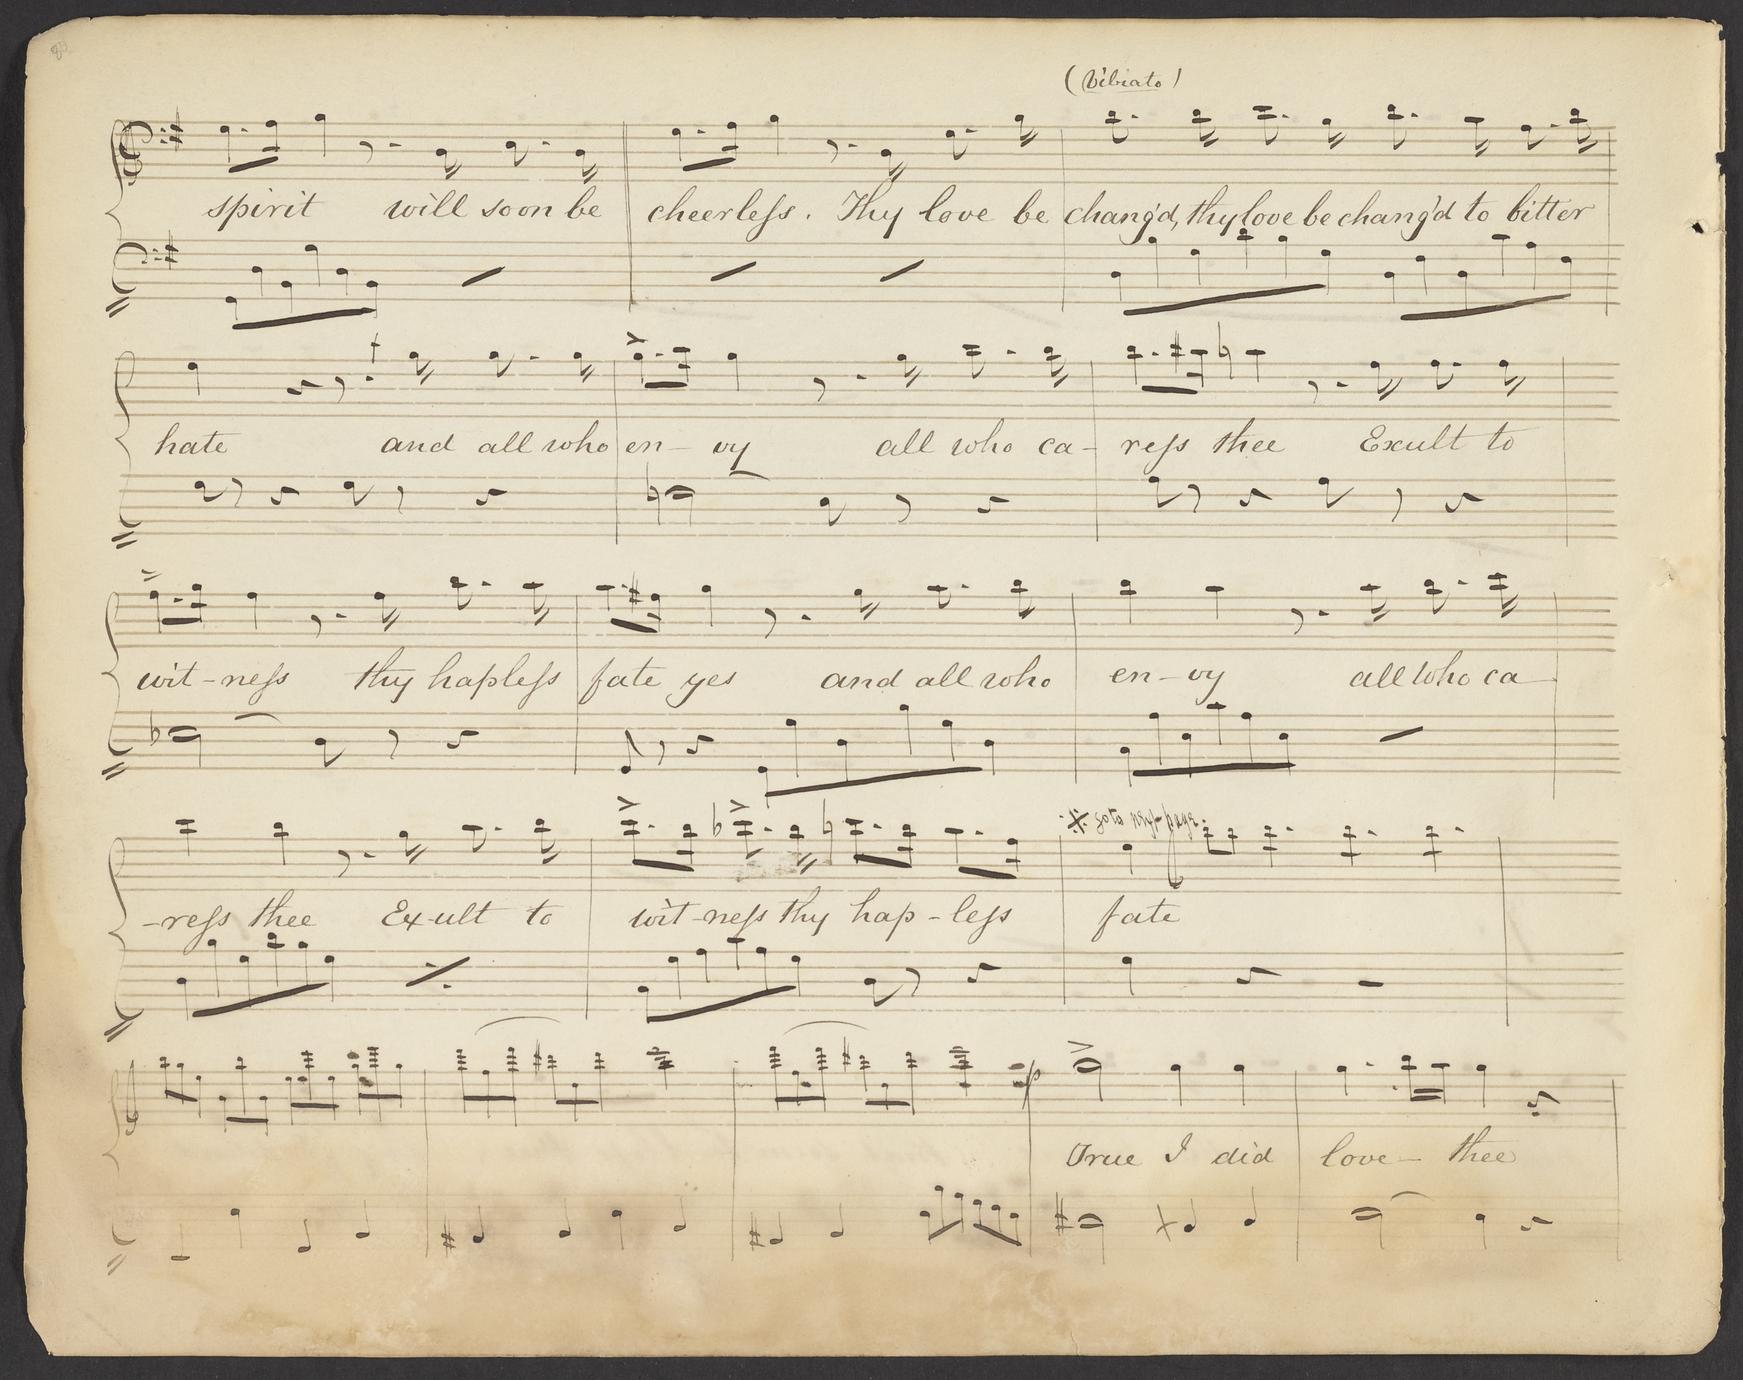 (Vibrato)
spirit will soon be cheerleſs. Thy love be chang'd, thy love be chang'd to bitter
hate and all who en- vy all who ca- reſs thee Exult to
wit-neſs thy hapleſs fate yes and all who en-vy all who ca
-reſs thee Ex-ult to wit-neſs thy hap-leſs fate
True I did love- thee